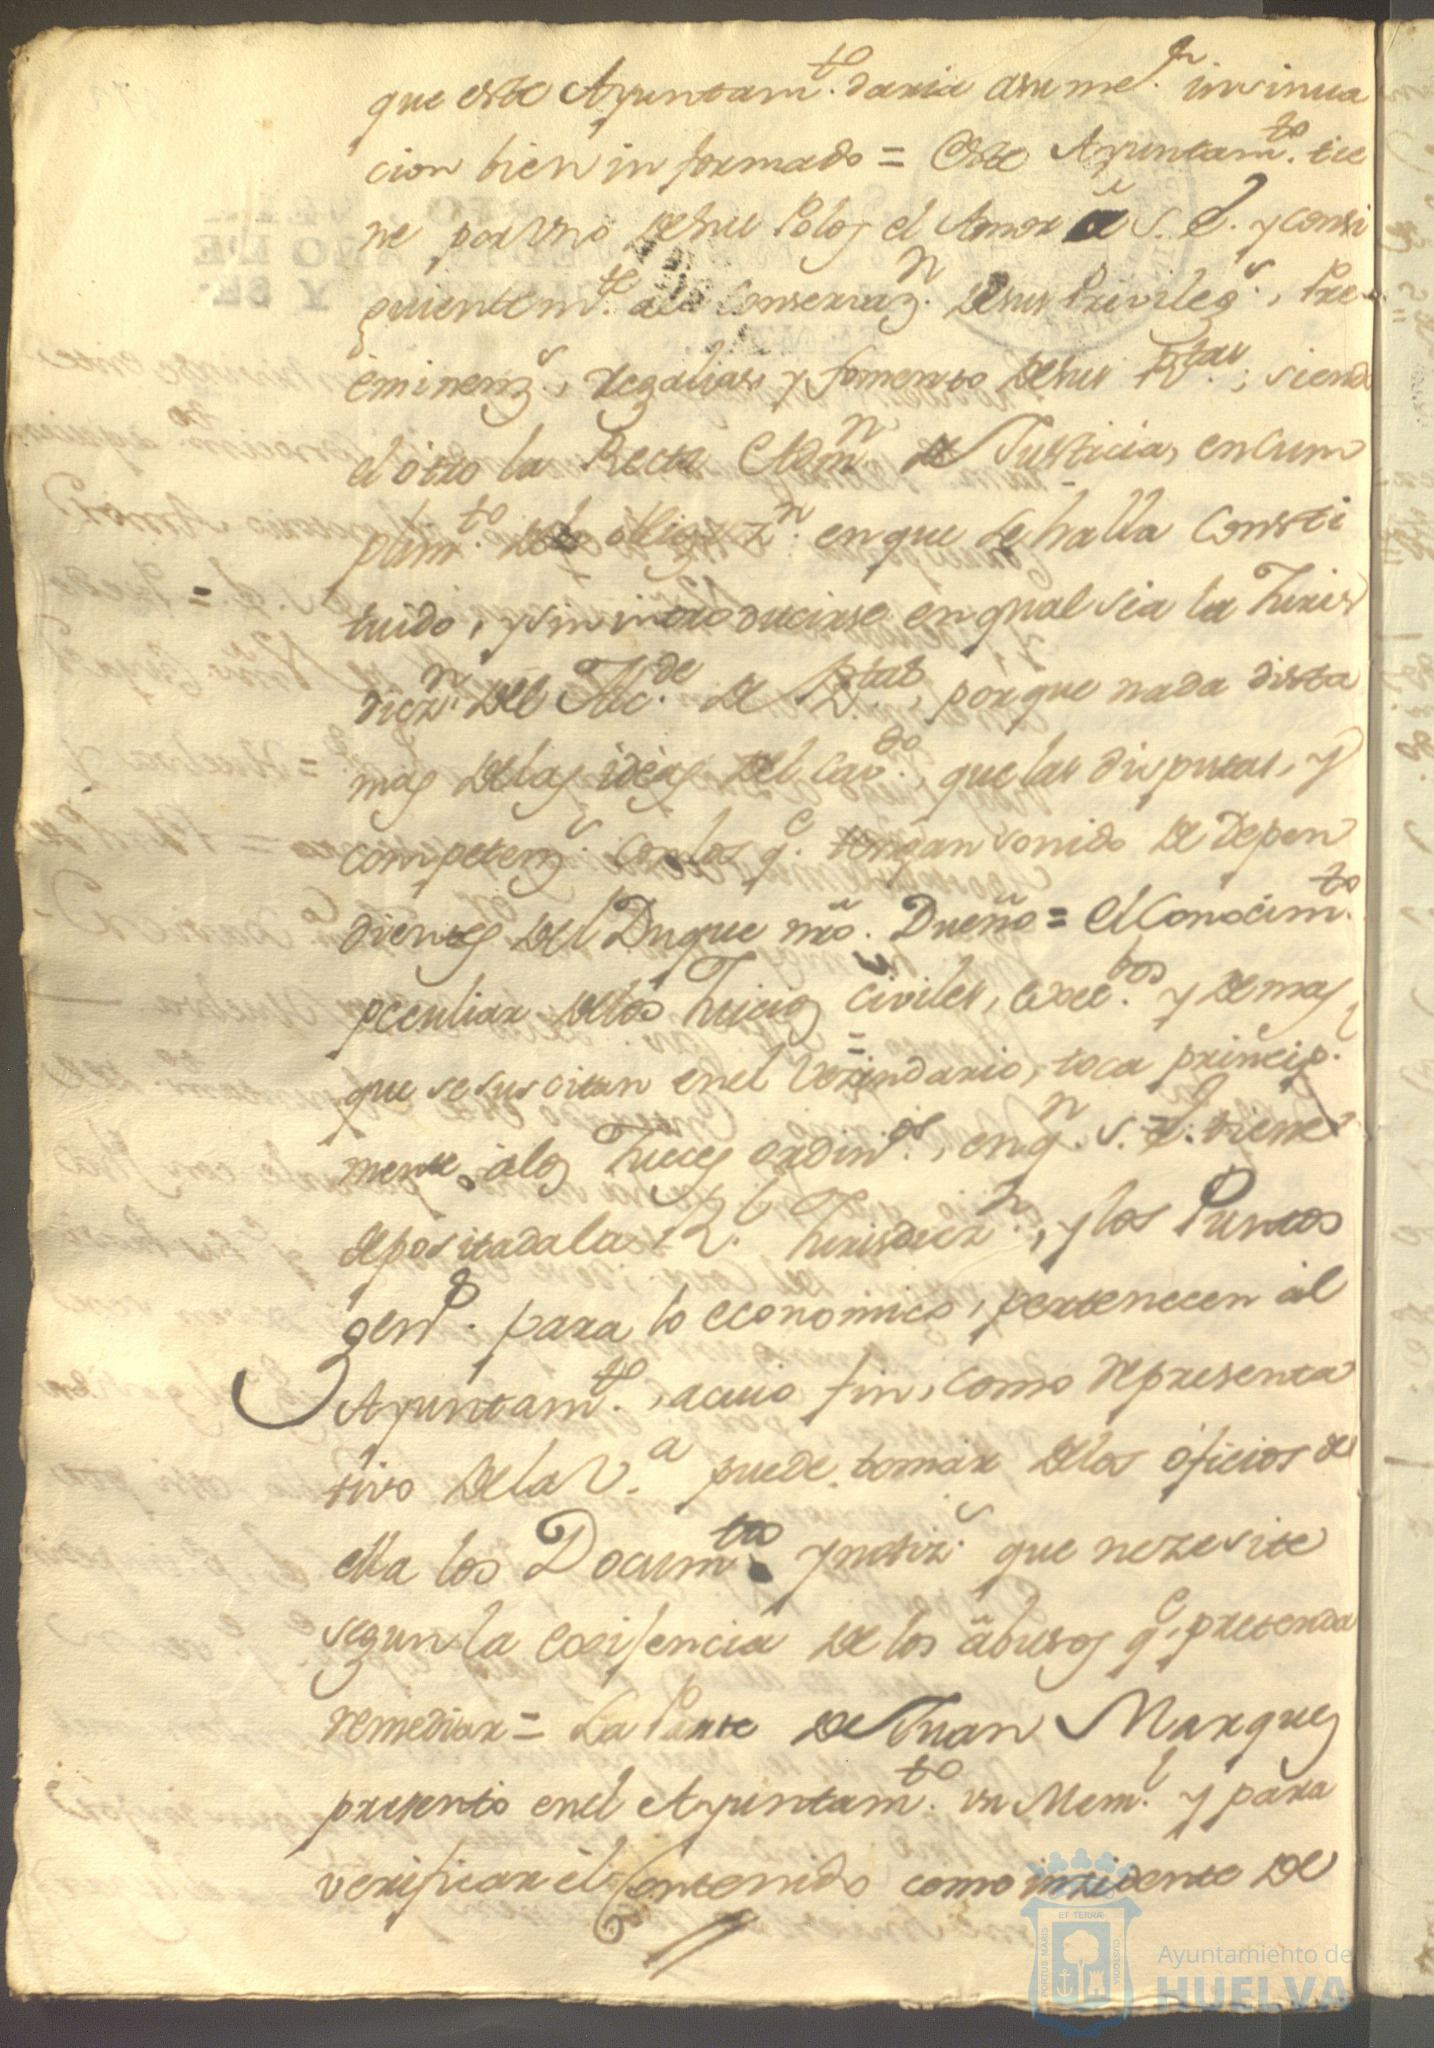 que este Ayuntam.to daria asu me.r insinua
cion bien informado = Este Ayuntam.to tie
ne por Uno de sus Polos el Amor a S. E. y consi
guientem.te ala Conservaz.n de sus Privileg.s, Pre-
eminenz.s, regalias, y fomento de sus R.tas; siendo
el otro la Recta Adm.n de Justicia, en Cum
plim.to de la obligaz.n en que se halla Consti
tuido, y sin introducirse en qual sea la Juris
dicz.n del Alc.de de R.tas, porque nada dista
mas de las ideas del Cav.do, que las disputas, y
competenz.s con los q.e tengan sonido de Depen
dientes del Duque nro. Dueño = El Conocim.to
peculiar de los Juicios Civiles, execu.bos y demas,
que se suscitan en el Vezindario, toca princip.l
mente, alos Jueces ordin.os, en q.n S. E. tiene
depositada la R.l Jurisdicz.n, y los Puntos
gen.s para lo economico, pertenecen al
Ayuntam.to, a cuio fin, como representa
tivo de la V.a puede tomar de los oficios de
ella los Docum.tos y notiz.s que nezesite
segun la exijencia de los abusos q.e pretenda
remediar = La Parte de Juan Marques
presento en el Ayuntam.to un Mem.l y para
verificar el Contenido como inzidente de
Ayuntamiento de
HUELVA
PORTUS MARIS
ET TERRÆ
CUSTODIA